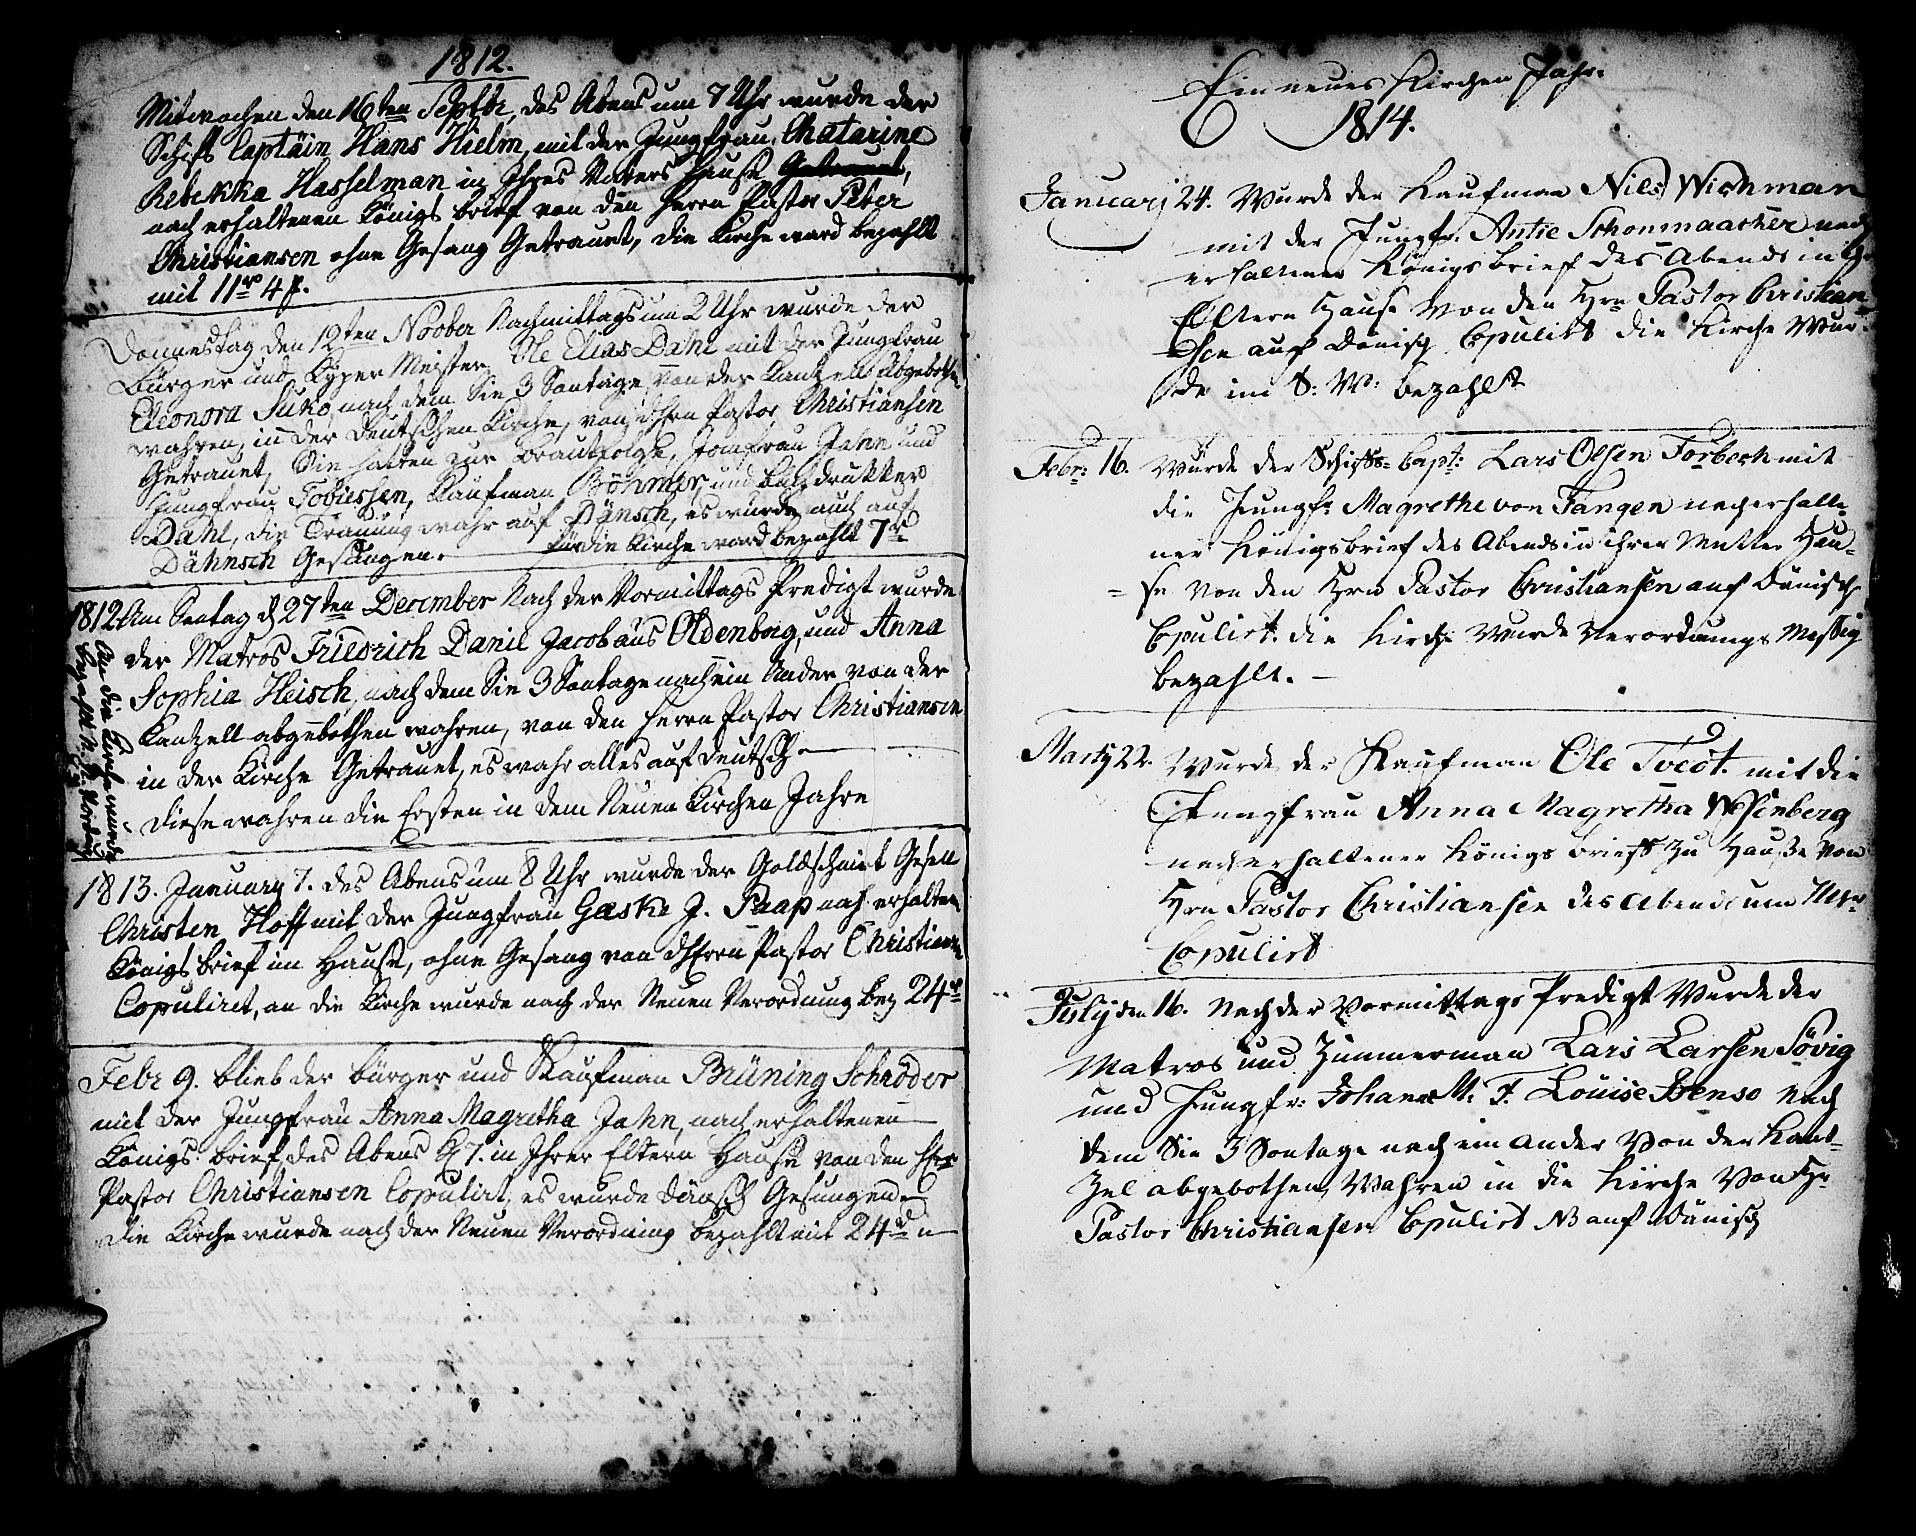 1812.
Mitwochen den 16ten Septbr, des Abens um 7 Uhr wurde der
Schifs Captäin Hans Hielm, mit der Jungfrau, Chatarine
Rebekka Hasselman in Ihres Vaters Hause Getrauet,
nach erhaltenen Königs brief von den Herrn Pastor Peter
Christiansen ohne Gesang Getrauet, die Kirche ward bezahlt
mit 11 4 ß.
Donnestag den 12ten Novber Nachmittags um 2 Uhr wurde der
Bürger und Küper Meister, Ole Elias Dahl mit der Jungfrau
Eleonora Suko, nach dem Sie 3 Sontage von der Kantzell Abgebothen
wahren, in der Deutschen Kirche, von Pastor Christiansen
Getrauet, Sie hatten zur Brautfolge, Jomfrau Jahn und
Jungfrau Tobiessen, Kaufman Böhmer, und Buchdrukker
Dahl, die Trauung wahr auf Dänsch, es wurde auch auf
Dähnsch Gesungen. für die Kirche ward bezahlt 7
1812 Am Sontag d 27ten December Nach der Vormittags Predigt wurde
der Matros Friedrich Danil Jacobäus Oldenborg, und Anna
Sophia Heisch, nach dem Sie 3 Sontage nach ein Ander von der
Kantzell abgebothen wahren, von den Herrn Pastor Christiansen
in der Kirche Getrauet, es wahr alles auf deutsch
diese wahren die Ersten in dem Neuen Kirchen Jahre
An die Kirche wurde
bezahlt
1813. January 7. des Abens um 8 Uhr wurde der Goldschmit Gesell
Christen Hoff mit der Jungfrau Gaske J. Paap nach erhalten
Königs brief im Hause, ohne Gesang von Herrn Pastor Christiansen
Copuliret, an die Kirche wurde nach der Neuen Verordnung bez 24
Febr 9. blieb der bürger und Kaufman Brüning Schröder
mit der Jungfrau Anna Magretha Jahn, nach erhaltenen
Königs brief des Abens 7. in Ihrer Eltern Hause von den Her
Pastor Christiansen Copulirt, es wurde dänsch Gesungen
die Kirche wurde nach der Neuen Verordnung bezahlt mit 24
Ein neues Kirchen Jahr.
1814.
January 24. Wurde der Kaufman Nils Wichman
mit der Jungfr. Antie Schonmaacher nach
erhaltener Königsbrief des Abends in Ihr
Eltern Hause von den Hrn Pastor Christian-
sen auf Dänisch Copulirt die Kirche wur-
de im S: W: bezahlt
Febr: 16. Wurde der Schiffs-Capt: Lars Olsen Forbech mit
die Jungf: Magrethe von Tangen nach erhalte-
ner Königsbrief des Abends in ihrer Mutter Hau-
se von den Hrn Pastor Christiansen auf Dänisch
Copulirt. die Kirche Wurde Verordnungs Messig
bezahlt.
Marty 22. Wurde der Kaufman Ole Tvedt. mit die
Jungfrau Anna Magretha Wesenberg
nach erhaltener Königs brieft zu Hauße von
Hrn Pastor Christiansen des Abends um
Copulirt
July den 16. Nach der Vormittags Predigt Wurde der
Matros und Zimmerman Lars Larsen Sövig
und Jungfr: Johane M. F. Louise Stenso nach
dem Sie 3 Sontage nach ein ander Von der Kant-
zel abgebothen, Wahren in die Kirche Von Hr
Pastor Christiansen Copulirt NB auf Dänisch